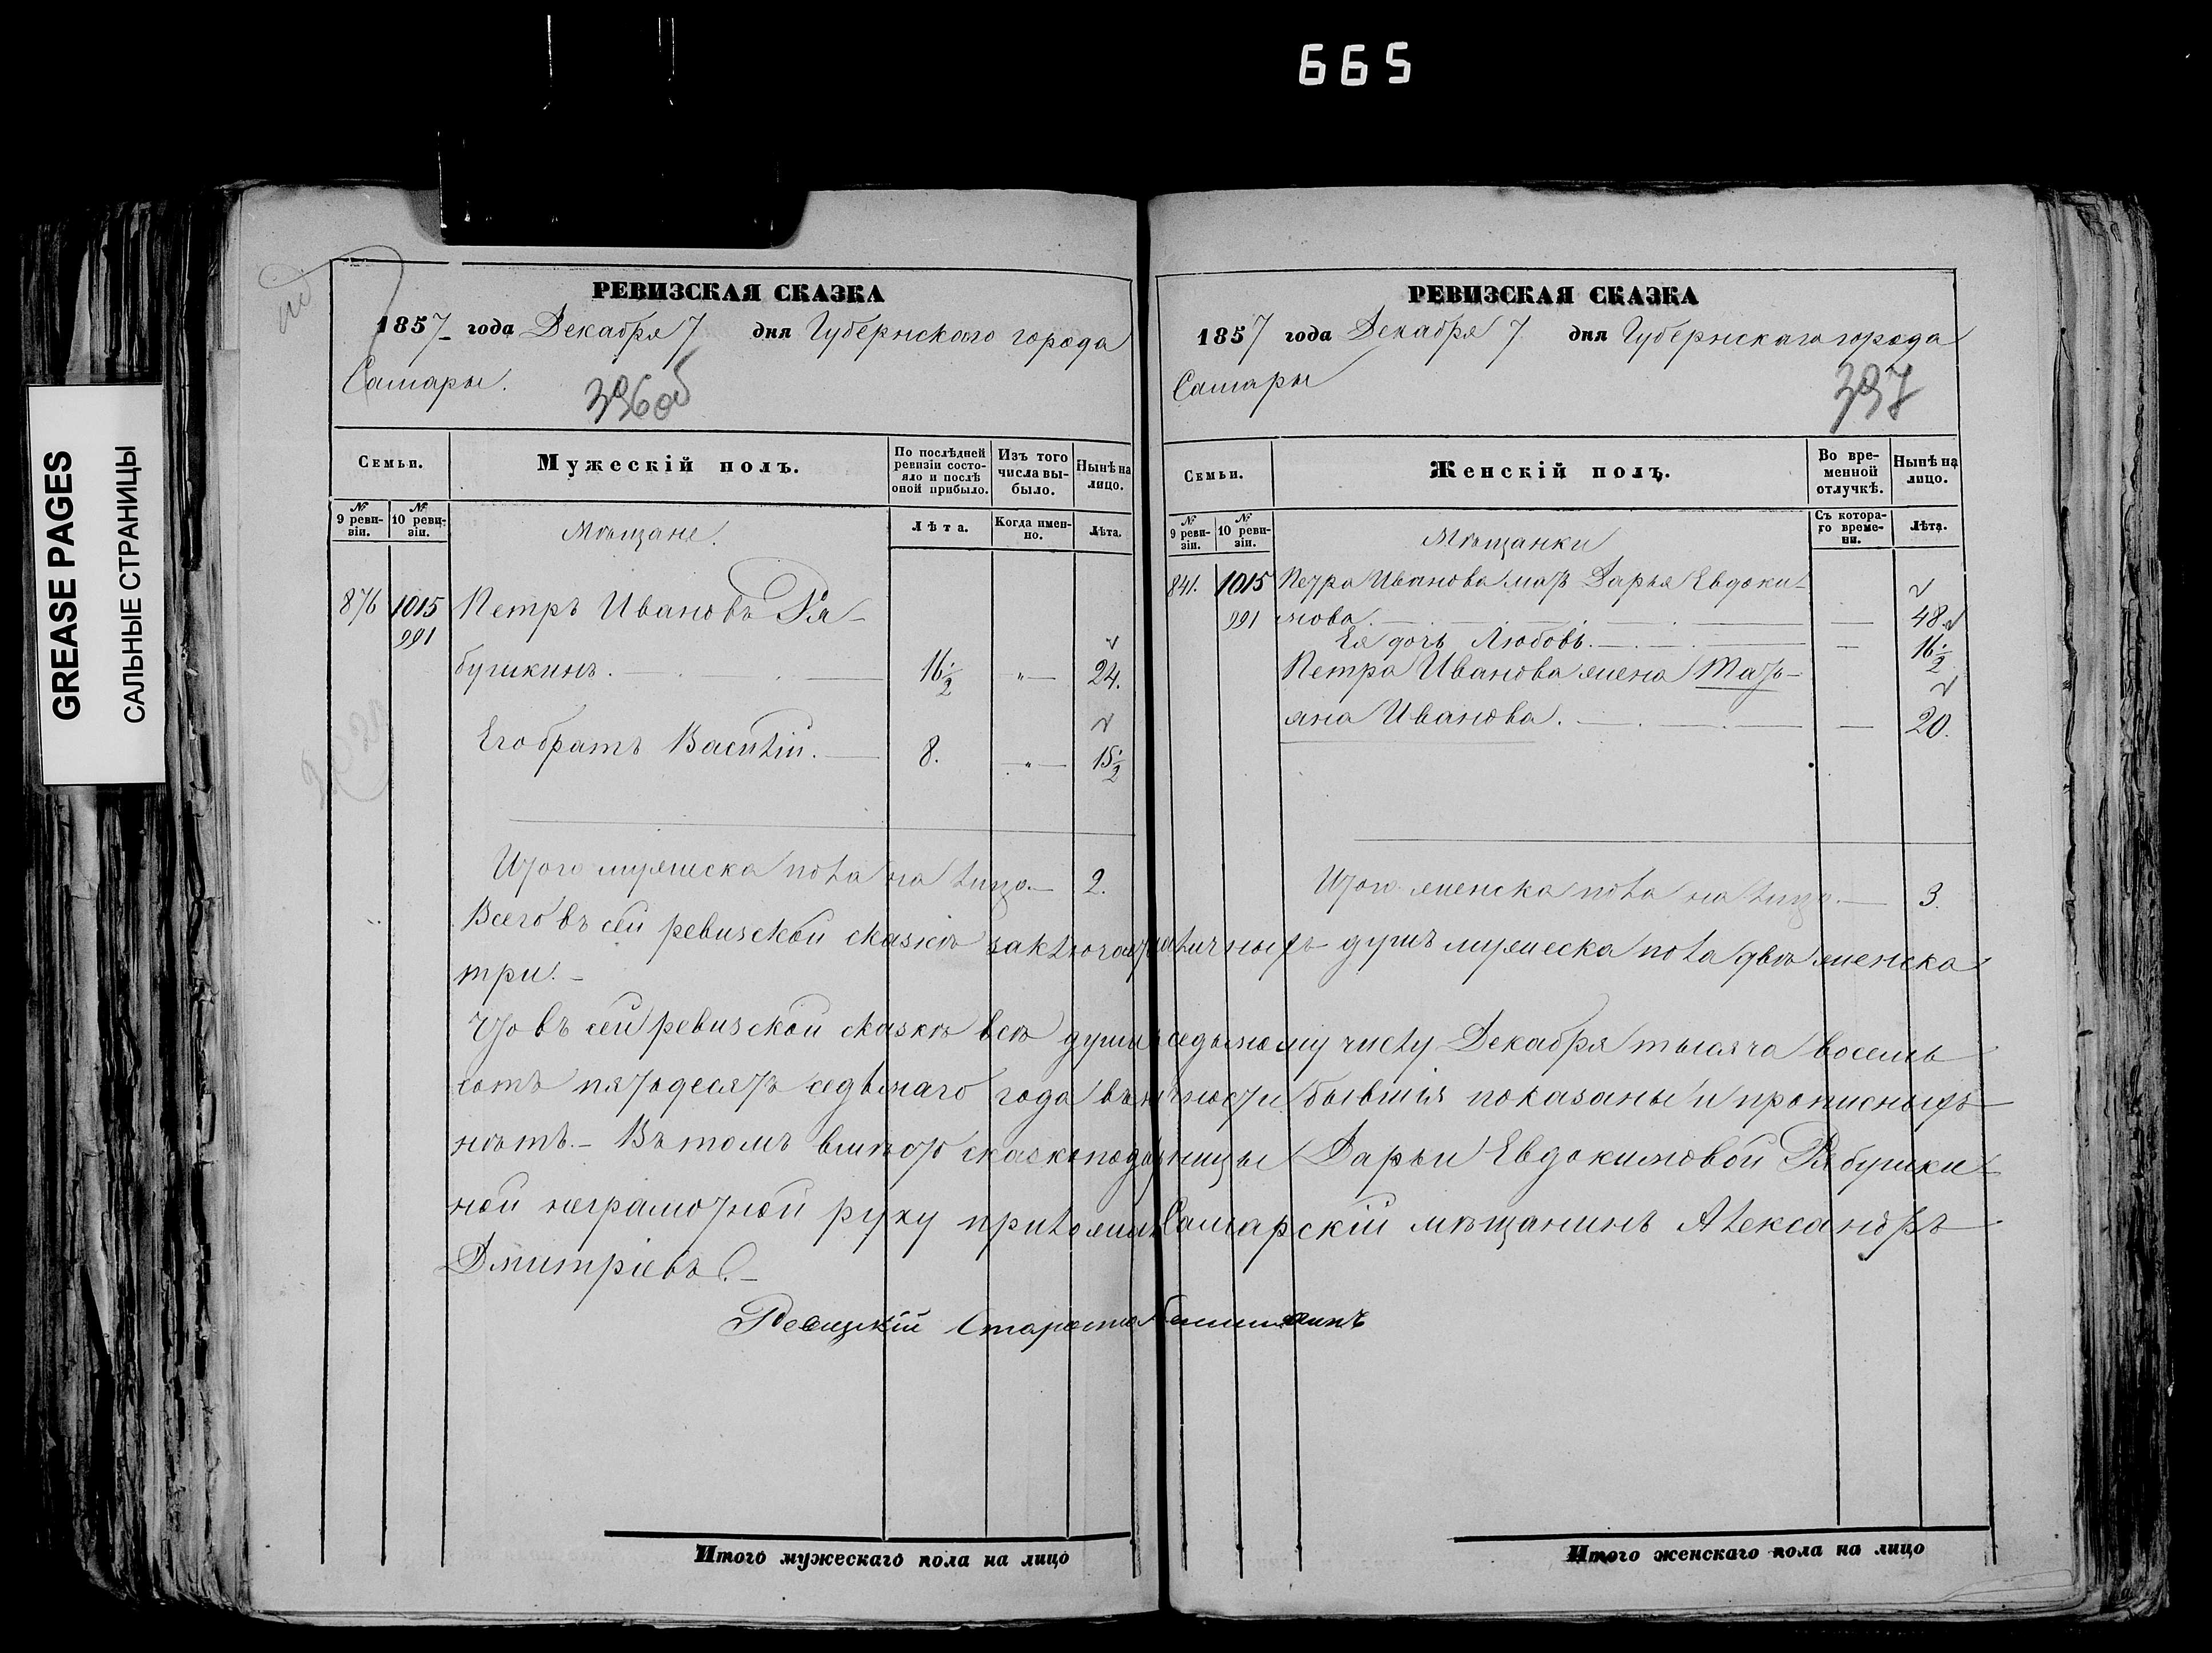 665
GREASE PAGES
САЛЬНЫЕ СТРАНИЦЫ
РЕВИЗСКАЯ СКАЗКА
1857 года Декабря 7 дня Губернскаго города
Самары.
396об
Семьи.
Мужескій полъ.
По послѣдней ревизіи состояло и послѣ оной прибыло.
Изъ того числа выбыло.
Нынѣ на лицо.
№ 9 ревизіи.
№ 10 ревизіи.
Мѣщане.
Лѣта.
Когда именно.
Лѣта.
876 1015 Петръ Ивановъ Ря-
991
бушкинъ. 16 1/2 " 24.
Его братъ Василій. 8. " 15 1/2
Итого мужеска пола на лицо 2.
РЕВИЗСКАЯ СКАЗКА
1857 года Декабря 7 дня Губернскаго города
Самары
397
Семьи.
Женскій полъ.
Во временной отлучкѣ.
Нынѣ на лицо.
№ 9 ревизіи.
№ 10 ревизіи.
Мѣщанки
Съ котораго времени.
Лѣта.
841. 1015 Петра Иванова мать Дарья Евдоки-
991 мова. 48.
Ея дочь Любовь. 16 1/2
Петра Иванова жена Тать-
яна Иванова. 20.
Итого женска пола на лицо. 3.
Всего въ сей ревизской сказкѣ заключается личныхъ душъ мужеска пола двѣ женска
три.
Что въ сей ревизской сказкѣ всѣ души къ седьмому числу Декабря тысяча восемь
сотъ пятьдесятъ седьмаго года въ личности бывшія показаны и прописныхъ
нѣтъ. Въ томъ вмѣсто сказкоподательницы Дарьи Евдокимовой Рябушки-
ной неграмотной руку приложилъ Самарскій мѣщанинъ Александръ
Дмитріевъ.
Староста
Итого мужескаго пола на лицо
Итого женскаго пола на лицо